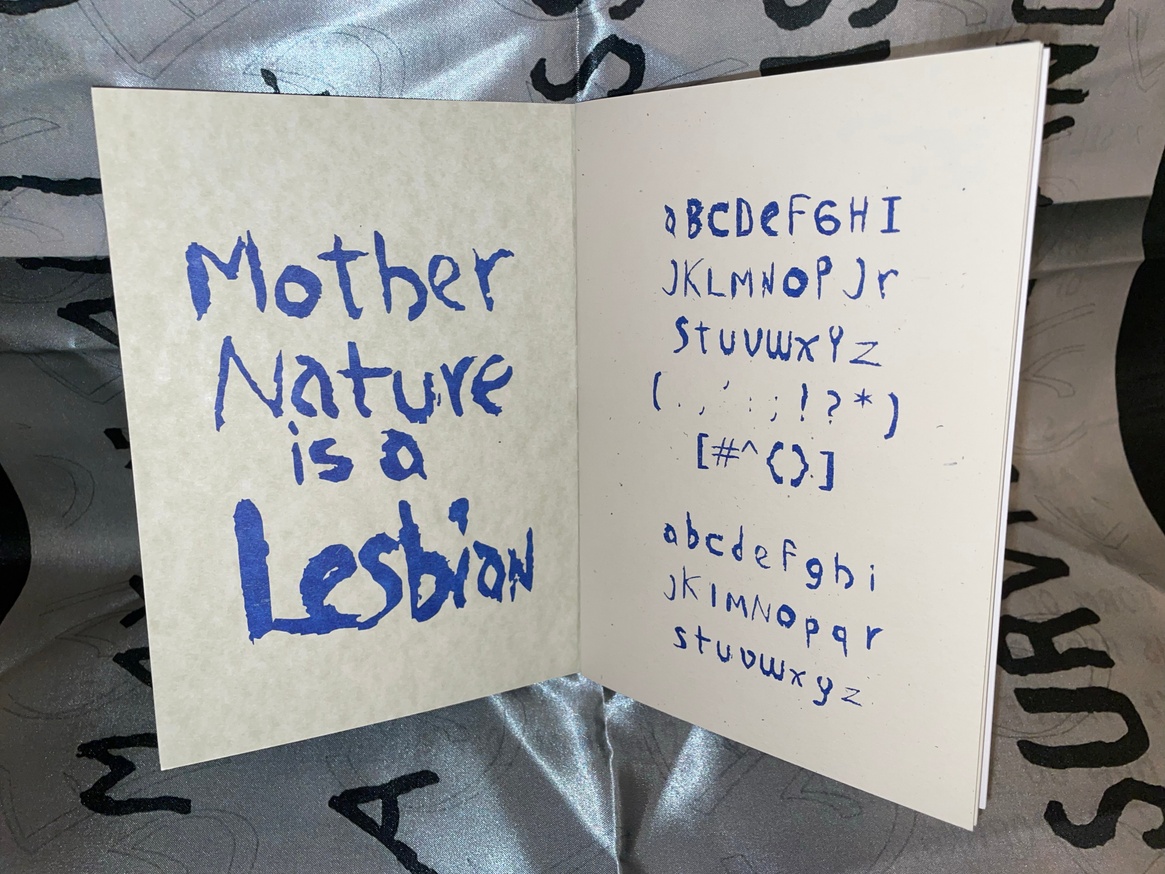 Mother
Nature
is a
Lesbian
aBCDeFGHI
JKLMNOPJr
StuvwxYz
(.,':;!?*)
[#^{}]
abcdefghi
JKlMNopqr
stuvwxyz
SURV